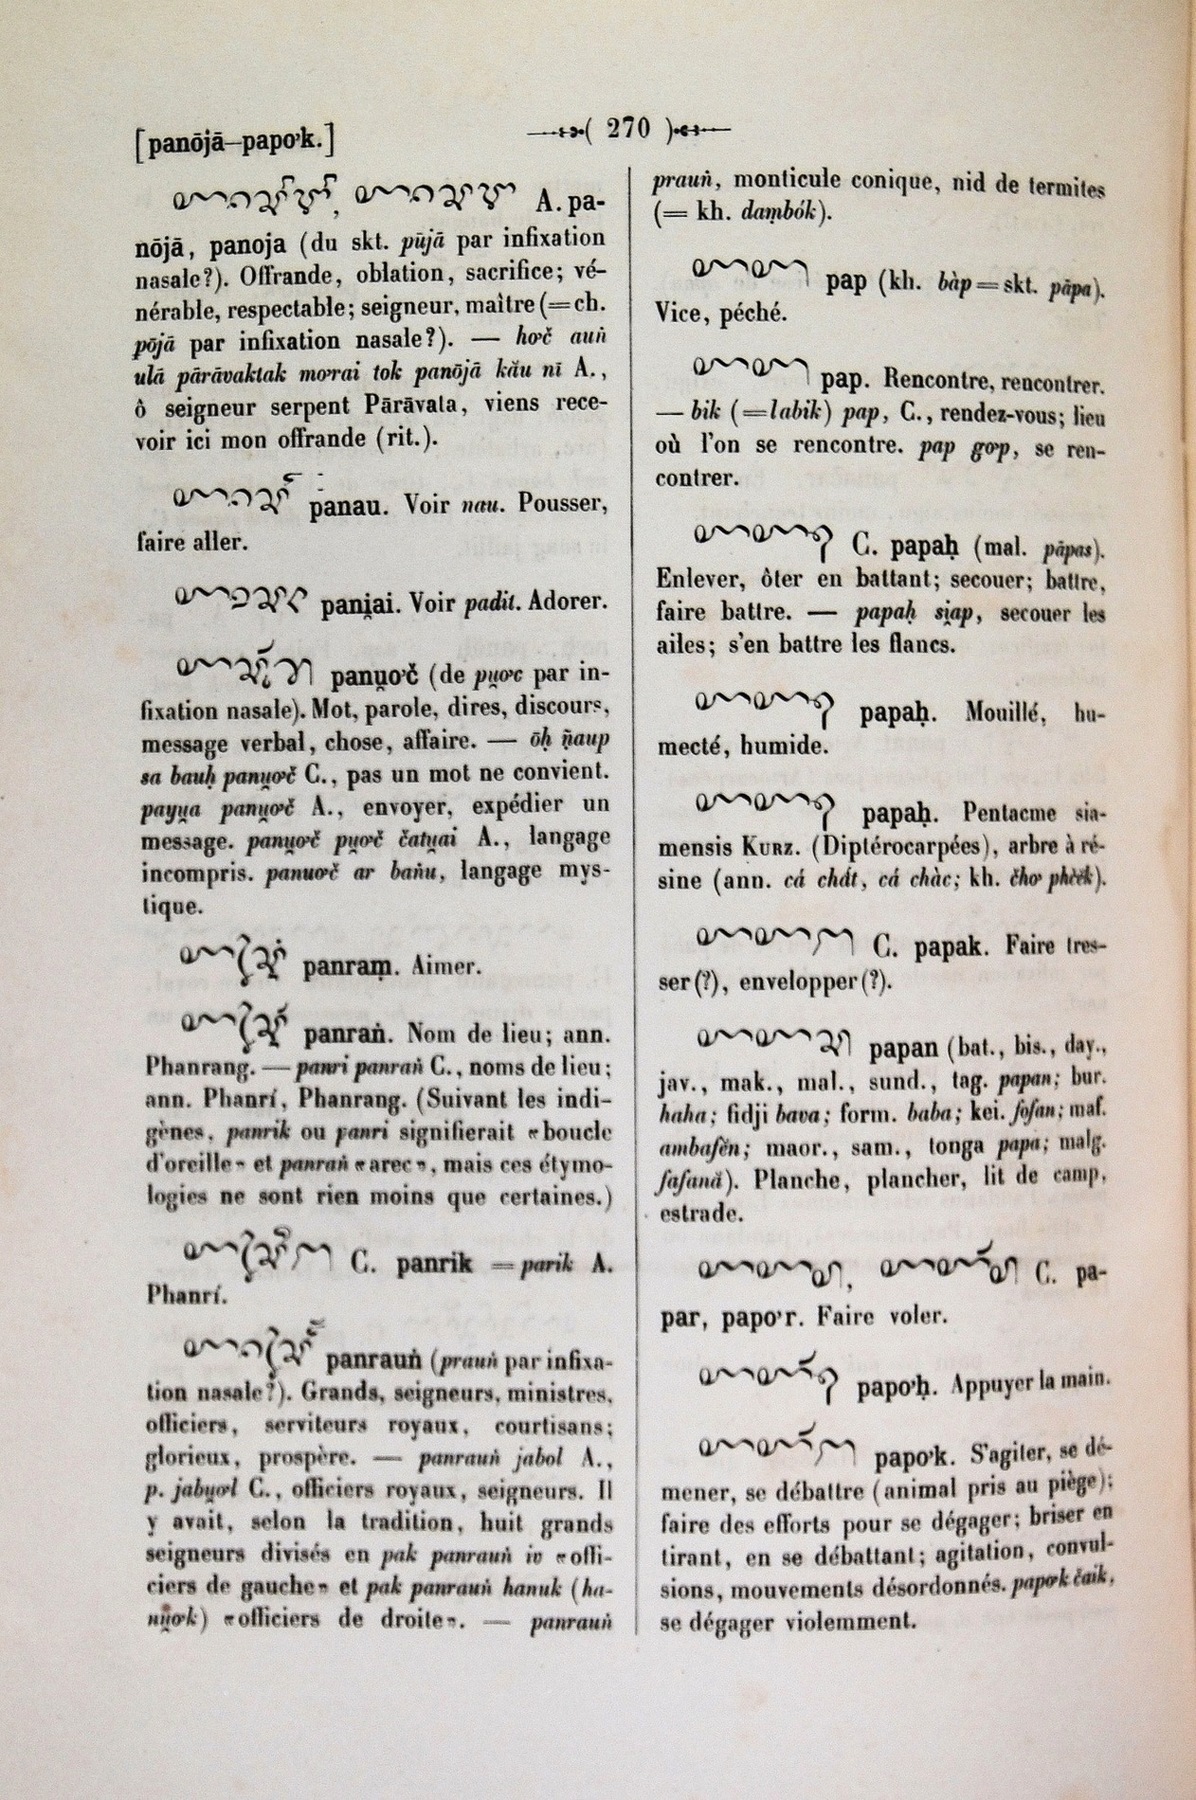 [panōjā—papơk.]
( 270 )
A. pa-
nōjā, panoja (du skt. pūjā par infixation
nasale?). Offrande, oblation, sacrifice; vé-
nérable, respectable; seigneur, maître (= ch.
pōjā par infixation nasale?). — hơč auṅ
ulā pārāvaktak mơrai tok panōjā kău nī A.,
ô seigneur serpent Pārāvata, viens rece-
voir ici mon offrande (rit.).
panau. Voir nau. Pousser,
faire aller.
pani̯ai. Voir padit. Adorer.
panu̯ơč (de pu̯ơc par in-
fixation nasale). Mot, parole, dires, discours,
message verbal, chose, affaire. — ōḥ ñaup
sa bauḥ panu̯ơč C., pas un mot ne convient.
payu̯a panu̯ơč A., envoyer, expédier un
message. panu̯ơč pu̯ơč čatu̯ai A., langage
incompris. panuơč ar baṅu, langage mys-
tique.
panraṃ. Aimer.
panraṅ. Nom de lieu; ann.
Phanrang. — panri panraṅ C., noms de lieu;
ann. Phanrí, Phanrang. (Suivant les indi-
gènes, panrik ou panri signifierait «boucle
d'oreille» et panraṅ «arec», mais ces étymo-
logies ne sont rien moins que certaines.)
C. panrik = parik A.
Phanrí.
panrauṅ (prauṅ par infixa-
tion nasale?). Grands, seigneurs, ministres,
officiers, serviteurs royaux, courtisans;
glorieux, prospère. — panrauṅ jabol A.,
p. jabu̯ơl C., officiers royaux, seigneurs. Il
y avait, selon la tradition, huit grands
seigneurs divisés en pak panrauṅ iv «offi-
ciers de gauche» et pak panrauṅ hanuk (ha-
nu̯ơk) «officiers de droite». — panrauṅ
prauṅ, monticule conique, nid de termites
(= kh. daṃbók).
pap (kh. bàp = skt. pāpa).
Vice, péché.
pap. Rencontre, rencontrer.
— bik (= labik) pap, C., rendez-vous; lieu
où l'on se rencontre. pap gơp, se ren-
contrer.
C. papaḥ (mal. pāpas).
Enlever, ôter en battant; secouer; battre,
faire battre. — papaḥ si̯ap, secouer les
ailes; s'en battre les flancs.
papaḥ. Mouillé, hu-
mecté, humide.
papaḥ. Pentacme sia-
mensis Kurz. (Diptérocarpées), arbre à ré-
sine (ann. cá chát, cá chàc; kh. čhơ phèèk).
C. papak. Faire tres-
ser (?), envelopper (?).
papan (bat., bis., day.,
jav., mak., mal., sund., tag. papan; bur.
haha; fidji bava; form. baba; kei. fofan; maf.
ambafên; maor., sam., tonga papa; malg.
fafană). Planche, plancher, lit de camp,
estrade.
C. pa-
par, papơr. Faire voler.
papơḥ. Appuyer la main.
papơk. S'agiter, se dé-
mener, se débattre (animal pris au piège);
faire des efforts pour se dégager; briser en
tirant, en se débattant; agitation, convul-
sions, mouvements désordonnés. papơk čaik,
se dégager violemment.